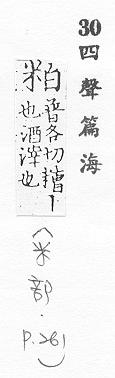 30四聲篇海
粕普各切糟丨
也酒滓也
(米部.P.261)